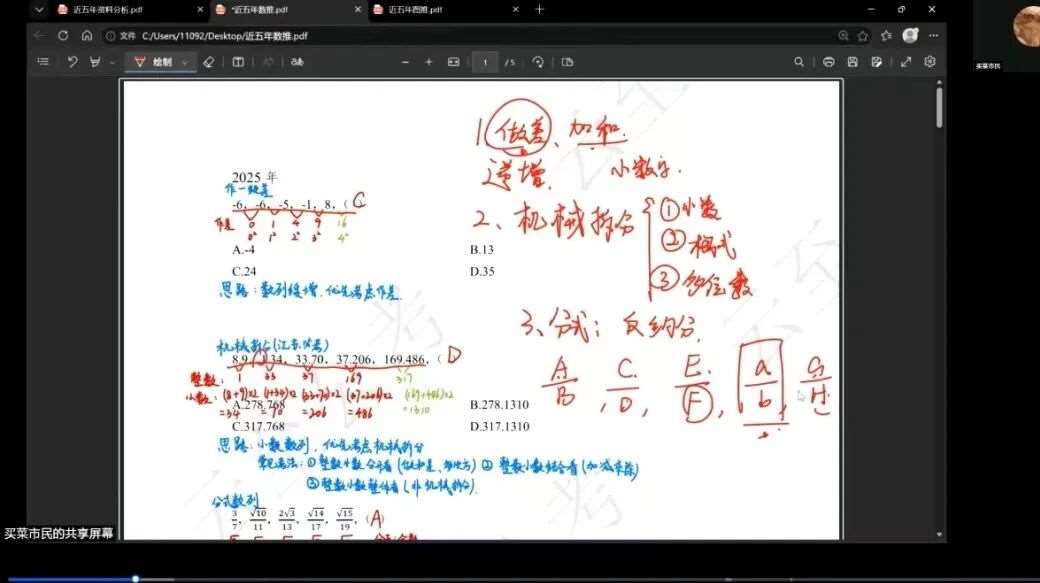 近五年资料分析.pdf
*近五年数推.pdf
近五年图推.pdf
文件 C:/Users/11092/Desktop/近五年数推.pdf
绘制
1 /5
买菜市民
1 做差、加和.
递增. 小数字.
2025 年
作一级差
-6，-6，-5，-1，8，（ C
作差 0 1 4 9 16
0² 1² 2² 3² 4²
A.-4 B.13
C.24 D.35
思路：数列缓增，优先考虑作差.
2、机械拆分
①小数
②根式
③多位数
3、分式：反约分
A/B, C/D, E/F, a/b, G/H
机械拆分(江苏必考)
34，33.70，37.206，169.486，（ D
整数： 1 33 37 169 317
小数：(8+9)×2 (1+34)×2 (33+70)×2 (37+206)×2 (169+486)×2
=34 =70 =206 =486 =1310
A.278.768 B.278.1310
C.317.768 D.317.1310
思路：小数数列，优先考虑机械拆分
①整数小数分开看 ②整数小数结合看(加减乘除)
③整数小数整体看(非机械拆分).
分式数列
3/7，√10/11，2√3/13，√14/17，√15/19，（A）
买菜市民的共享屏幕